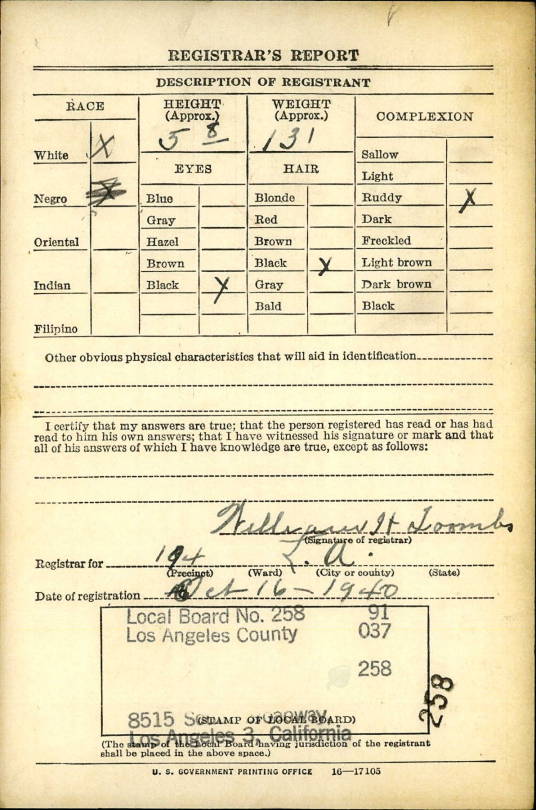 REGISTRAR'S REPORT
DESCRIPTION OF REGISTRANT
RACE
HEIGHT (Approx.)
WEIGHT (Approx.)
COMPLEXION
5 8
131
White X
Negro X
Oriental
Indian
Filipino
EYES
Blue
Gray
Hazel
Brown
Black X
HAIR
Blonde
Red
Brown
Black X
Gray
Bald
Sallow
Light
Ruddy X
Dark
Freckled
Light brown
Dark brown
Black
Other obvious physical characteristics that will aid in identification
I certify that my answers are true; that the person registered has read or has had
read to him his own answers; that I have witnessed his signature or mark and that
all of his answers of which I have knowledge are true, except as follows:
William H Toombs
(Signature of registrar)
Registrar for 194 L. A.
(Precinct) (Ward) (City or county) (State)
Date of registration Oct 16 - 1940
Local Board No. 258 91
Los Angeles County 037
258
258
8515 Broadway,
(STAMP OF LOCAL BOARD)
Los Angeles 3, California
(The stamp of the Local Board having jurisdiction of the registrant
shall be placed in the above space.)
U. S. GOVERNMENT PRINTING OFFICE 16—17105